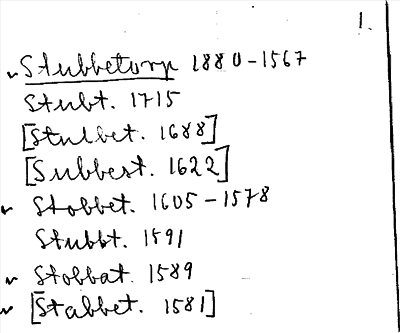 1.
✓ Stubbetorp 1880-1567
Stubt. 1715
[Stulbet. 1688]
[Subbest. 1622]
✓ Stobbet. 1605-1578
Stubbt. 1591
✓ Stobbat. 1589
✓ [Stabbet. 1581]